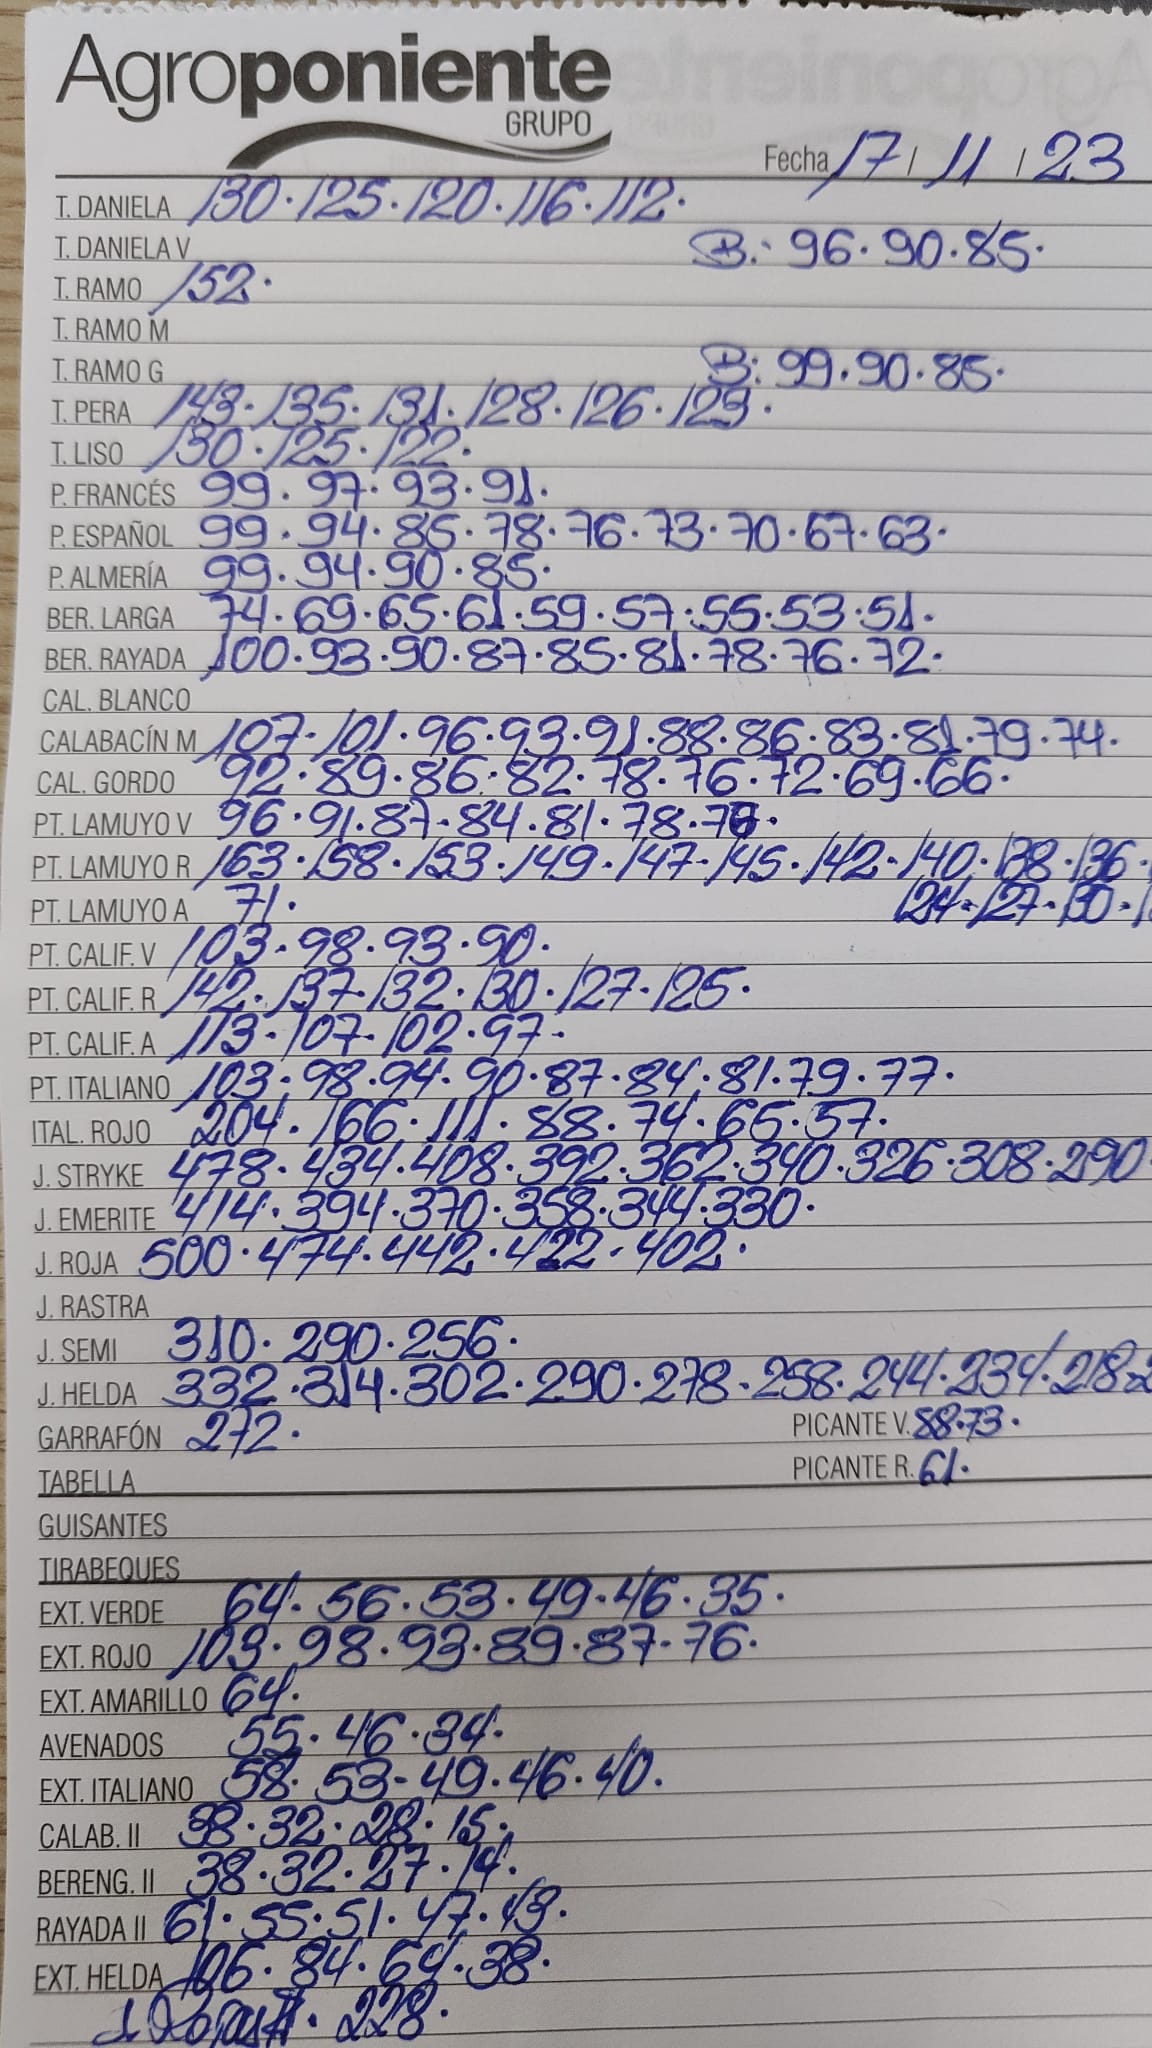 Agroponiente
GRUPO
Fecha 17 / 11 / 23
T. DANIELA 130·125·120·116·112·
T. DANIELA V B: 96·90·85·
T. RAMO 152·
T. RAMO M
T. RAMO G B: 99·90·85·
T. PERA 143·135·131·128·126·123·
T. LISO 130·125·122·
P. FRANCÉS 99·97·93·91·
P. ESPAÑOL 99·94·85·78·76·73·70·67·63·
P. ALMERÍA 99·94·90·85·
BER. LARGA 74·69·65·61·59·57·55·53·51·
BER. RAYADA 100·93·90·87·85·81·78·76·72·
CAL. BLANCO
CALABACÍN M 107·101·96·93·91·88·86·83·81·79·74·
CAL. GORDO 92·89·86·82·78·76·72·69·66·
PT. LAMUYO V 96·91·87·84·81·78·
PT. LAMUYO R 163·158·153·149·147·145·142·140·138·136·
PT. LAMUYO A 71· 124·127·130·
PT. CALIF. V 103·98·93·90·
PT. CALIF. R 142·137·132·130·127·125·
PT. CALIF. A 113·107·102·97·
PT. ITALIANO 103·98·94·90·87·84·81·79·77·
ITAL. ROJO 204·166·111·88·74·65·57·
J. STRYKE 478·434·408·392·362·340·326·308·290
J. EMERITE 414·394·370·358·344·330·
J. ROJA 500·474·442·422·402·
J. RASTRA
J. SEMI 310·290·256·
J. HELDA 332·314·302·290·278·258·244·234·218·
GARRAFÓN 272· PICANTE V. 88·73·
TABELLA PICANTE R. 61·
GUISANTES
TIRABEQUES
EXT. VERDE 64·56·53·49·46·35·
EXT. ROJO 103·98·93·89·87·76·
EXT. AMARILLO 64·
AVENADOS 55·46·34·
EXT. ITALIANO 58·53·49·46·40·
CALAB. II 38·32·28·15·
BERENG. II 38·32·27·14·
RAYADA II 61·55·51·47·43·
EXT. HELDA 106·84·64·38·
228·